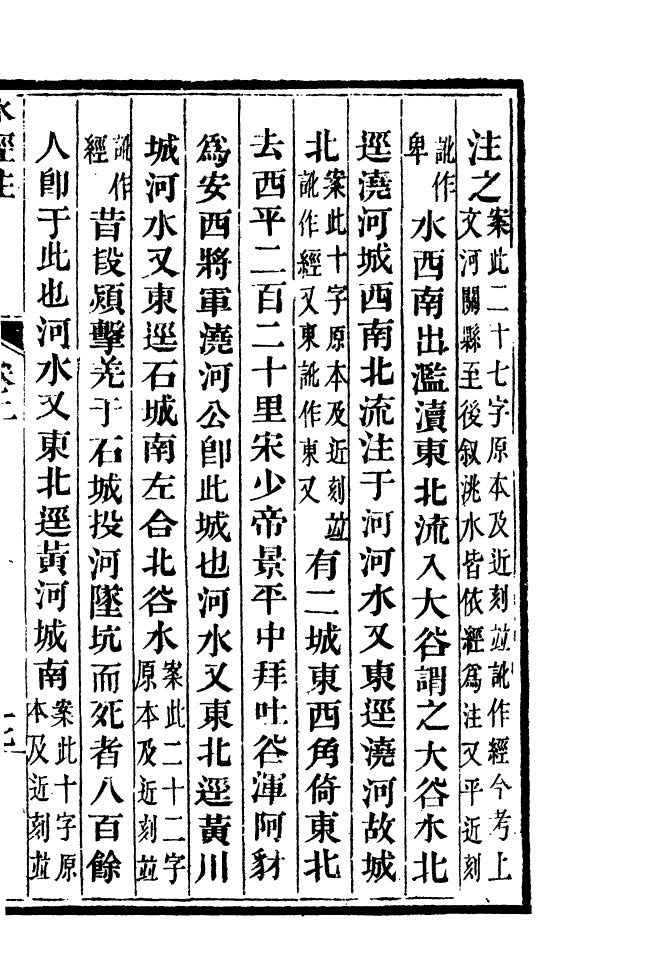 注之案此二十七字原本及近刻並訛作經今考上文河關縣至後叙洮水皆依經爲注又平近刻
訛作卑水西南出濫瀆東北流入大谷謂之大谷水北
逕澆河城西南北流注于河河水又東逕澆河故城
北案此十字原本及近刻並訛作經又東訛作東又有二城東西角倚東北
去西平二百二十里宋少帝景平中拜吐谷渾阿豺
爲安西將軍澆河公卽此城也河水又東北逕黃川
城河水又東逕石城南左合北谷水案此二十二字原本及近刻並
訛作經昔段熲擊羌于石城投河墜坑而死者八百餘
人卽于此也河水又東北逕黃河城南案此十字原本及近刻並
水經注
卷二